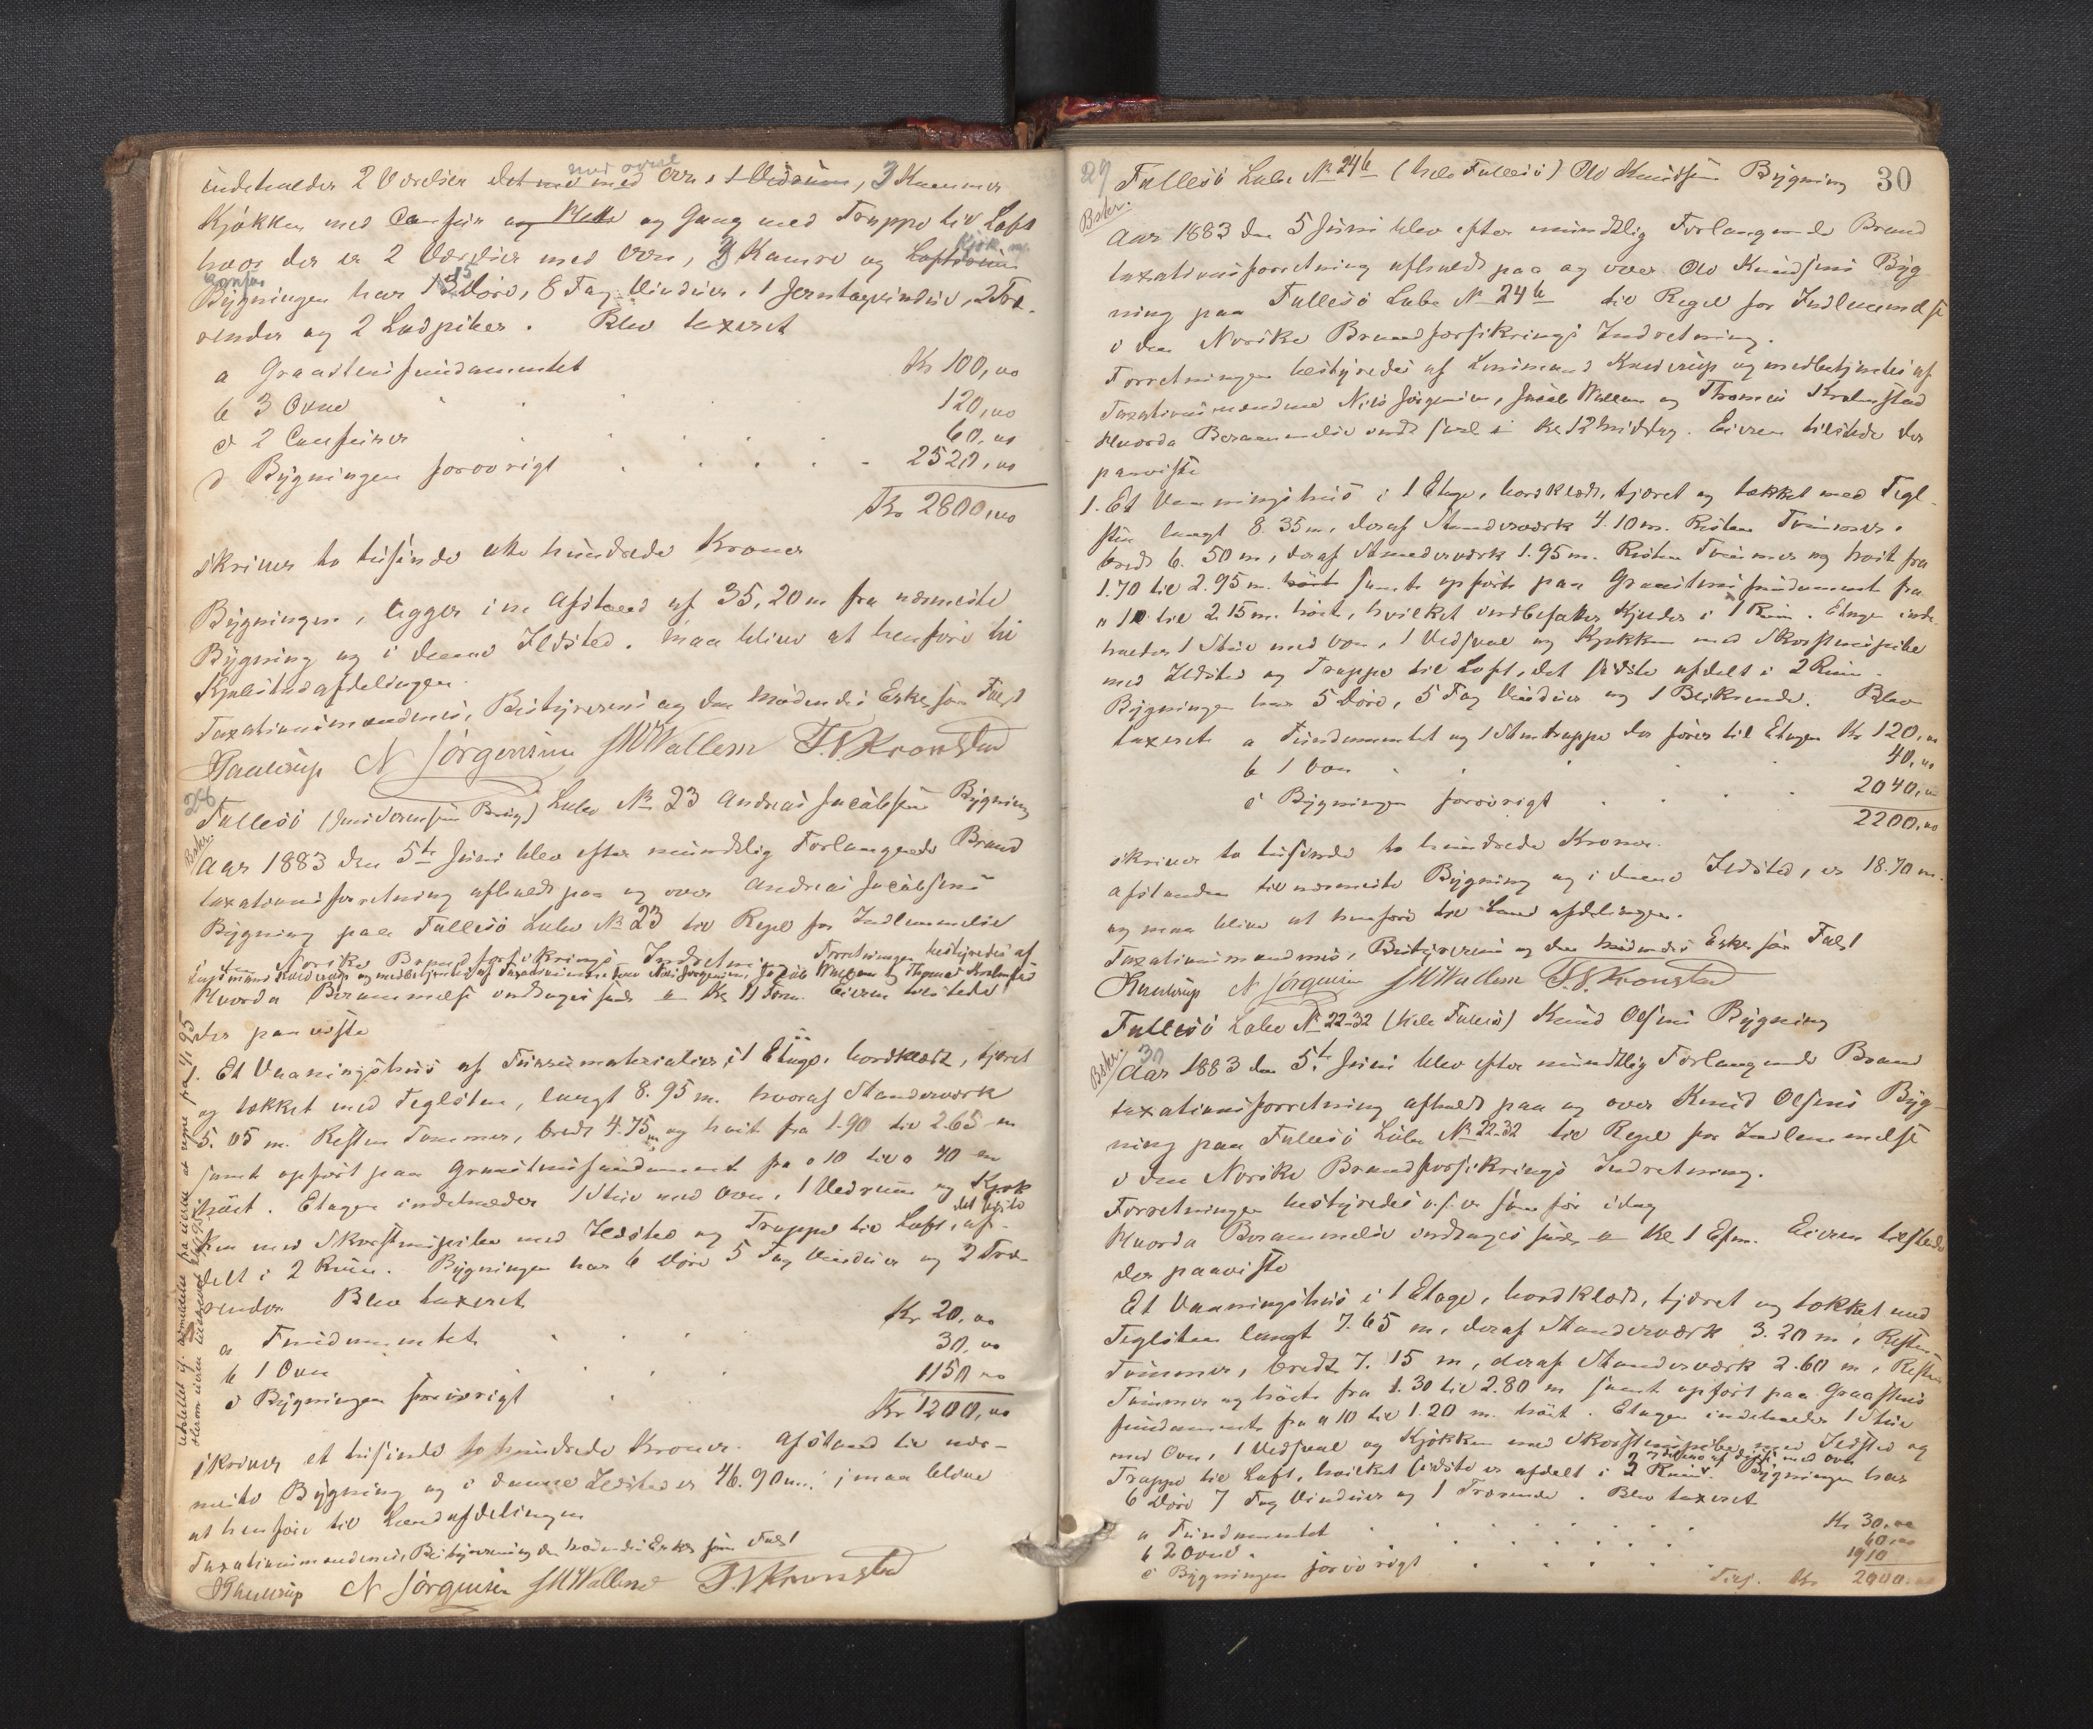 indeholder 2 Værelser det ene med Ovn, 1 Vedrum, 3 Kammer
med ovne
Kjøkken med Comfur og Kleve og Gang med Trappe til Loft
hvor der er 2 Værelser med Ovn, 3 Kamre og Loftsrum
Kjøk m
Comfur
Bygningen har 15 Døre, 8 Fag Vinduer, 1 Jerntagvindue, 2 Tra-
render og 2 Ludpiber. Blev taxeret
a Graastensfundamentet Kr 100,00
b 3 Ovne 120,00
c 2 Comfurer 60,00
d Bygningen forøvrigt 2520,00
Kr 2800,00
skriver to tusinde otte hundrede Kroner
Bygningen, ligger i en Afstand af 35,20 m fra nærmeste
Bygning og i denne Ildsted. maa blive at henføre til
Kjøbstadafdelingen.
Taxationsmændenes, Bestyrerens og den mødendes Eske som Talst
Knudsrup N Jørgensen JMWallem T.N.Kronstad
28
Follesø (Johannessen Brug) Lübe No 23 Andreas Jacobsens Bygning
Bskr.
Aar 1883 den 5te Juni blev efter mundtlig Forlangende Brand
taxationsforretning afholdt paa og over Andreas Jacobsens
Bygning paa Follesø Lübe No 23 til Regel for Indlemmelse
i den Norske Brandforsikrings Indretning Forretningen bestyredes af
Lensmand Knudsrup og medbetjentes af Taxationsmændene Nils Jørgensen, Jacob Wallem og Thomas Kronstad
Hvorda Berammelse inddroges sees Kl 11 Form. Eieren tilstede
der paaviste
1. Et Vaaningshus af Furumaterialier i 1 Etage, bordklædt, tjæret
og tækket med Teglsten, langt 8.95 m. hvoraf Standerværk
5.05 m. Resten Tømmer, bredt 4.75 m og høit fra 1.90 til 2.65 m
samt opført paa Graastensfundament fra 0 10 til 0 40 m
høit. Etagen indeholder 1 Stue med Ovn, 1 Vedrum og Kjøk
det første
ken med Skorstenspibe med Ildsted og Trappe til Loft, af-
delt i 2 Rum. Bygningen har 6 Døre 5 Fag Vinduer og 2 Træ-
render Blev taxeret
a Fundamentet Kr 20,00
b 1 Ovn 30,00
c Bygningen forøvrigt 1150,00
Kr 1200,00
skriver et tusinde to hundrede Kroner. Afstand til nær-
meste Bygning og i denne Ildsted er 46.90 m.; maa blive
at henføre til Landafdelingen
Taxationsmændenes, Bestyrerens og den mødendes Eske som Talst
Knudsrup N Jørgensen JMWallem T.N.Kronstad
29
30
Follesø Lübe No 24b (hele Follesø) Ole Knudsens Bygning
Bskr.
Aar 1883 den 5 Juni blev efter mundtlig Forlangende Brand
taxationsforretning afholdt paa og over Ole Knudsens Byg-
ning paa Follesø Lübe No 24b til Regel for Indlemmelse
i den Norske Brandforsikrings Indretning.
Forretningen bestyredes af Lensmand Knudsrup og medbetjentes af
Taxationsmændene Nils Jørgensen, Jacob Wallem og Thomas Kronstad
Hvorda Berammelse Kl 12 Middag. Eieren tilstede der
paaviste
1. Et Vaaningshus i 1 Etage, bordklædt, tjæret og tækket med Tegl-
sten langt 8.35 m, deraf Standerværk 4.10 m. Resten Tømmer,
bredt 6.50 m, deraf Standerværk 1.95 m. Resten Tømmer og høit fra
1.70 til 2.95 m. høit samt opført paa Graastensfundament fra
0 10 til 2.15 m. høit, hvilket indbefatter Kjelder i 1 Rum. Etagen inde-
holder 1 Stue med Ovn, 1 Vedsval og Kjøkken med Skorstenspibe
med Ildsted og Trappe til Loft, det sidste afdelt i 2 Rum.
Bygningen har 5 Døre, 5 Fag Vinduer og 1 Blikrende. Blev
taxeret a Fundamentet og 1 Stentrappe der fører til Etagen Kr 120,00
b 1 Ovn 40,00
c Bygningen forøvrigt 2040,00
2200,00
skriver to tusinde to hundrede Kroner.
Afstanden til nærmeste Bygning og i denne Ildsted, er 18.70 m.
og maa blive at henføre til Landafdelingen.
Taxationsmændenes, Bestyrerens og den mødendes Eske som Talst
Knudsrup N Jørgensen JMWallem T.N.Kronstad
Follesø Lübe No 22-32 (hele Follesø) Knud Olsens Bygning
30
Bskr.
Aar 1883 den 5te Juni blev efter mundtlig Forlangende Brand
taxationsforretning afholdt paa og over Knud Olsens Byg-
ning paa Follesø Lübe No 22-32 til Regel for Indlemmelse
i den Norske Brandforsikrings Indretning.
Forretningen bestyredes o.s.v. som før idag
Hvorda Berammelse inddroges sees Kl 1 Efm. Eieren tilstede
der paaviste
Et Vaaningshus i 1 Etage, bordklædt, tjæret og tækket med
Teglsten langt 7.65 m, deraf Standerværk 3.20 m, Resten
Tømmer, bredt 7.15 m, deraf Standerværk 2.60 m, Resten
Tømmer og høit fra 1.30 til 2.80 m samt opført paa Graastens
fundament fra 0 10 til 1.20 m. høit. Etagen indeholder 1 Stue
med Ovn, 1 Vedsval og Kjøkken med Skorstenspibe med Ildsted og
Trappe til Loft, hvilket sidste er afdelt i 2 Rum. Bygningen har
6 Døre 7 Fag Vinduer og 1 Trærende. Blev taxeret
a Fundamentet Kr 30,00
b 2 Ovne. 60,00
c Bygningen forøvrigt 1910
Kr 2000,00